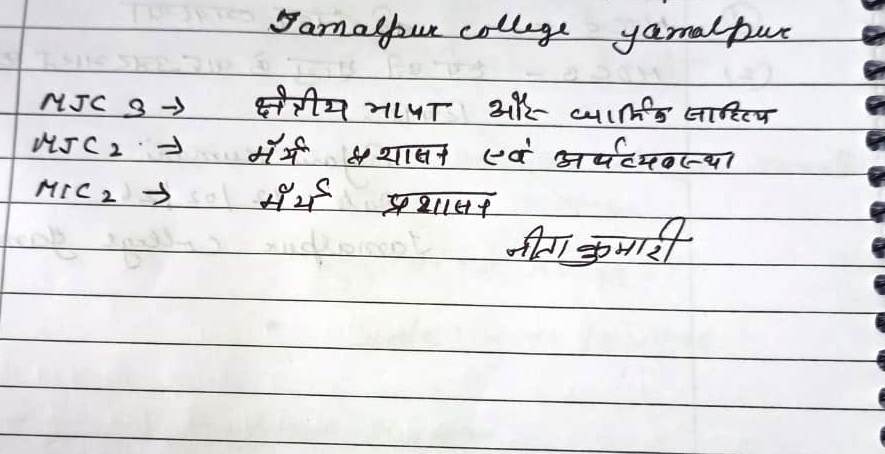 Jamalpur college yamalpur
MJC 3 → क्षेत्रीय भाषा और धार्मिक साहित्य
MJC 2 → मौर्य प्रशासन एवं अर्थव्यवस्था
MIC 2 → मौर्य प्रशासन
नीता कुमारी